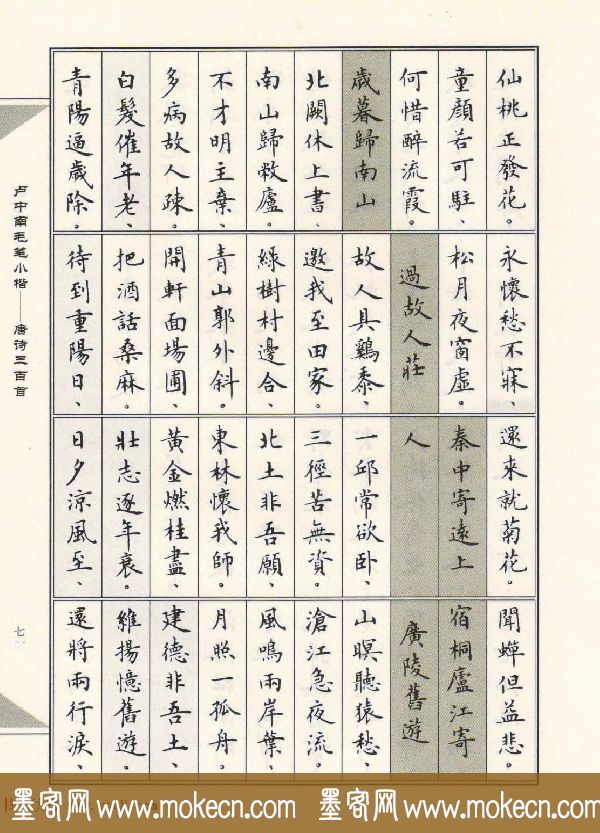 仙桃正發花。
童顏若可駐、
何惜醉流霞。
歲暮歸南山
北闕休上書、
南山歸敝廬。
不才明主棄、
多病故人疎。
白髮催年老、
青陽逼歲除。
永懷愁不寐、
松月夜窗虛。
過故人莊
故人具雞黍、
邀我至田家。
綠樹村邊合、
青山郭外斜。
開軒面場圃、
把酒話桑麻。
待到重陽日、
還來就菊花。
秦中寄遠上
人
一邱常欲卧、
三徑苦無資。
北土非吾願、
東林懷我師。
黃金燃桂盡、
壯志逐年衰。
日夕涼風至、
聞蟬但益悲。
宿桐廬江寄
廣陵舊遊
山暝聽猿愁、
滄江急夜流。
風鳴兩岸葉、
月照一孤舟。
建德非吾土、
維揚憶舊遊。
還將兩行淚、
卢中南毛笔小楷——唐诗三百首
墨客网 www.mokecn.com 墨客网 www.mokecn.com